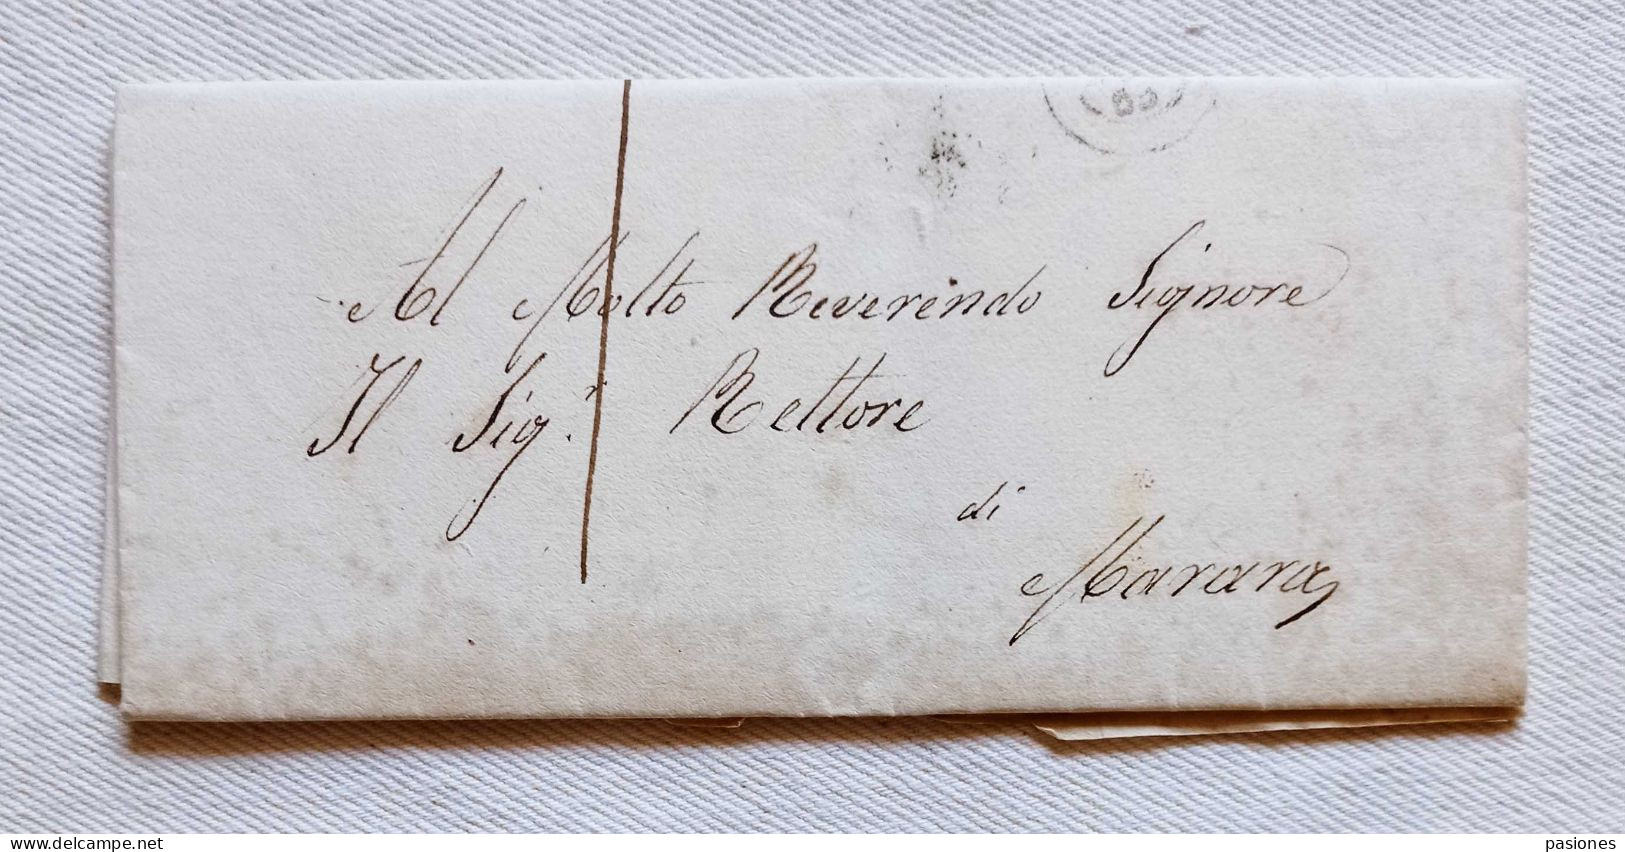 63
Al Molto Reverendo Signore
Il Sig.r Rettore
di
Marara
delcampe.net
pasiones